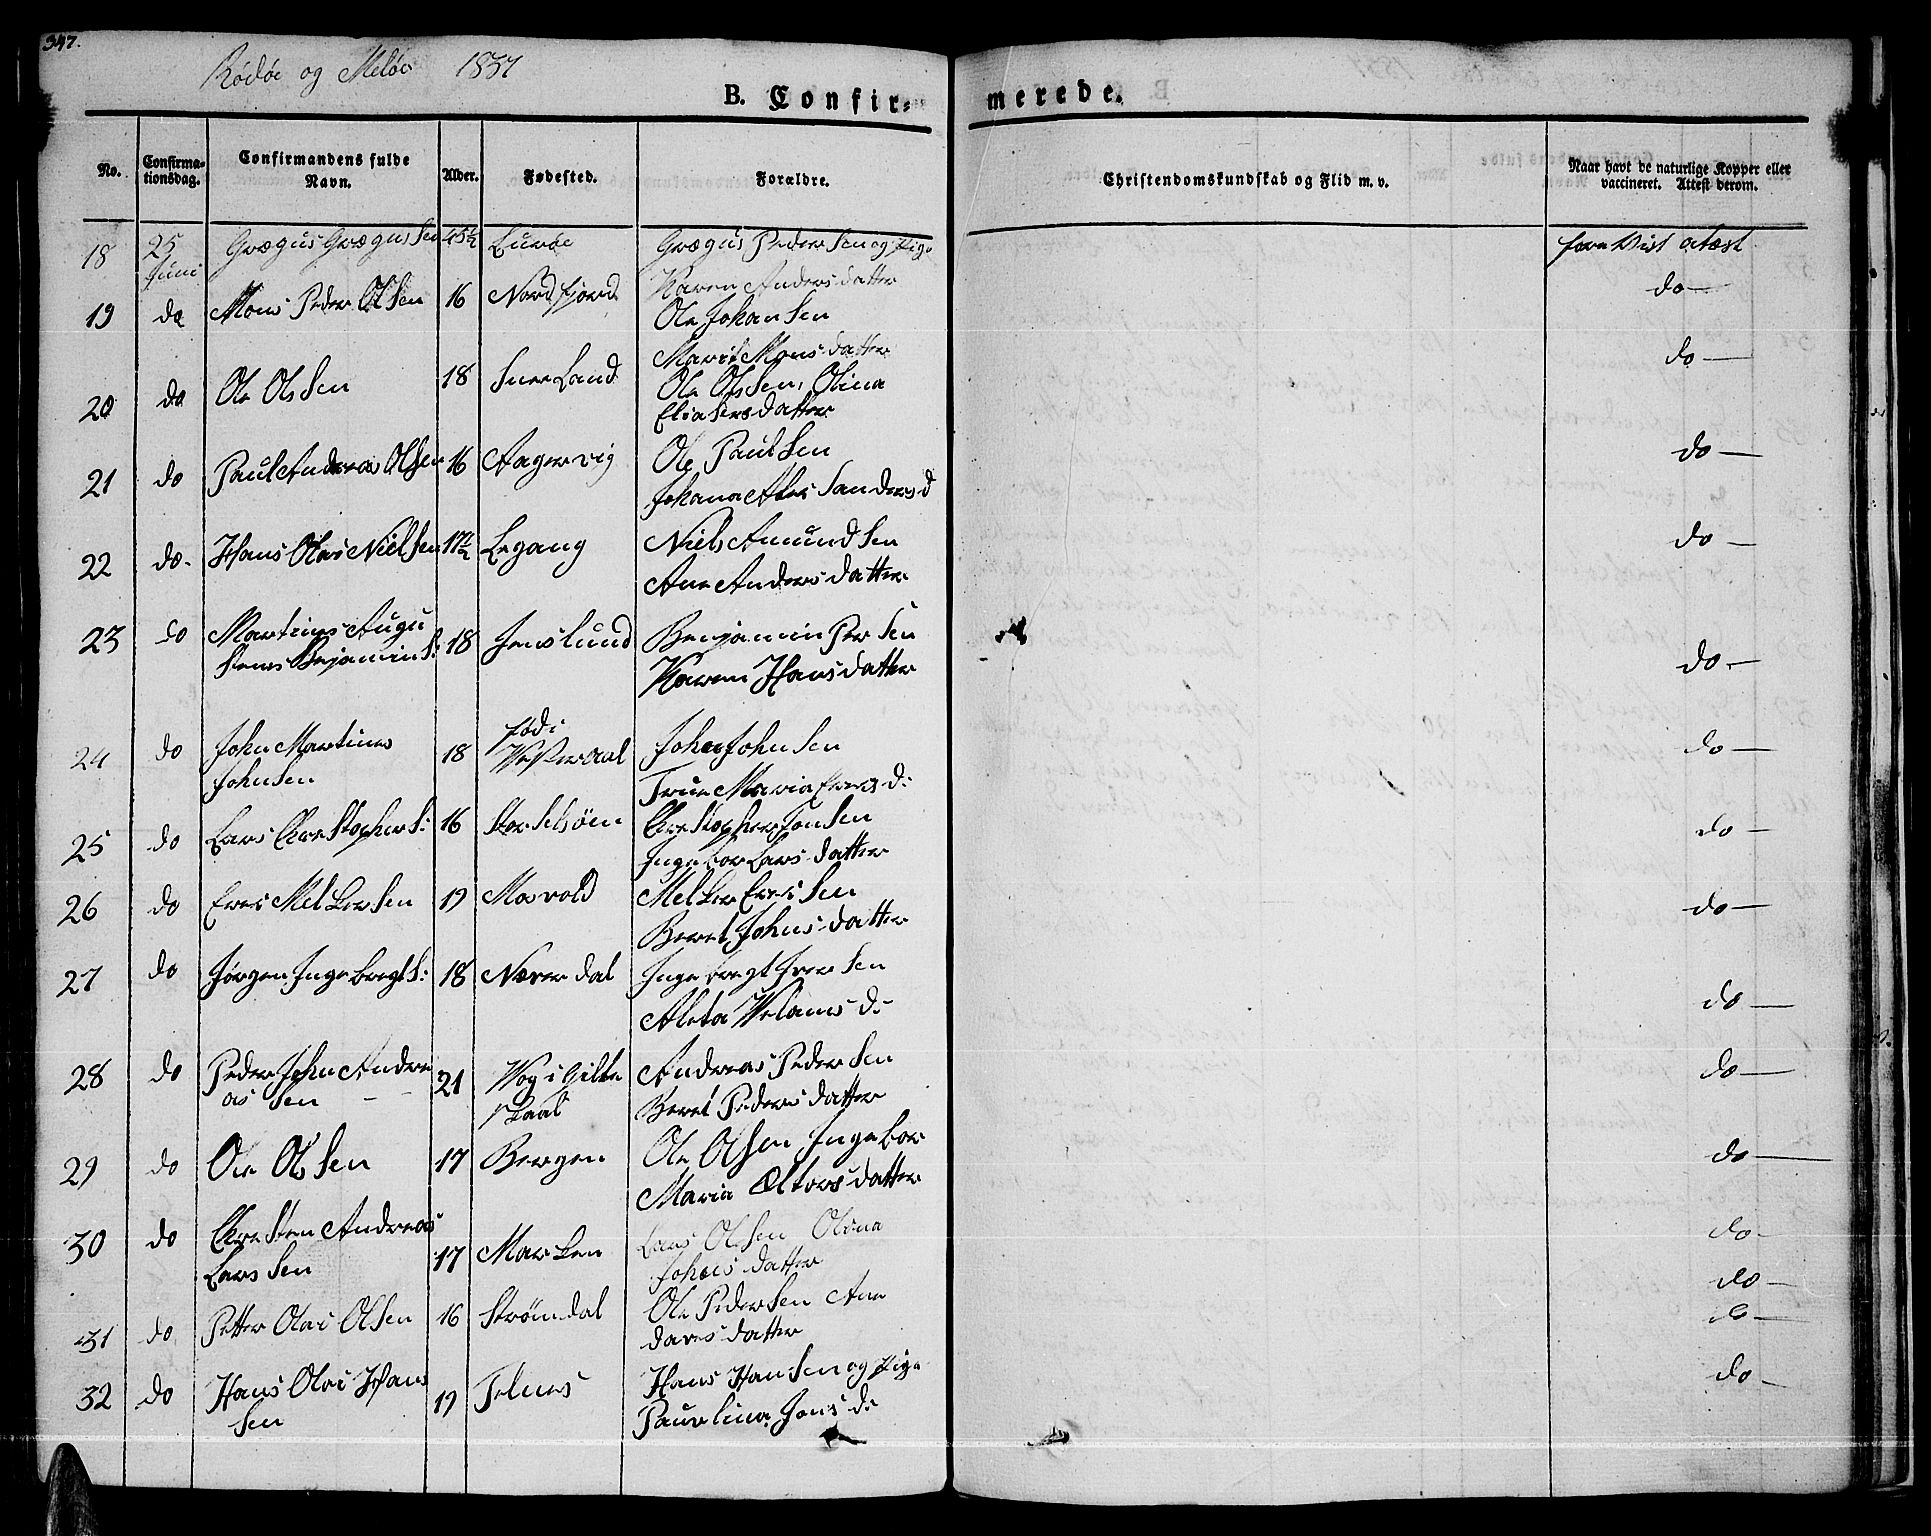 347.
Rödöe og Melöe 1837
B. Confir-
merede.
No.
Confirma-
tionsdag.
Confirmandens fulde
Navn.
Alder.
Fødested.
Forældre.
Christendomskundskab og Flid m. v.
Naar havt de naturlige Kopper eller
vaccineret. Attest derom.
18 25 Juni Grægus Grægussen Luröe Grægus Peder Sen og Pige
Karen Andersdatter
forevist atæst
19 do Mons Peder OlSen 16 Nordfjord Ole JohanSen
Marit Monsdatter
do
20 do Ole OlsSen 18 Ole OlsSen, Olina
Eliasersdatter
do
21 do Paul Andreas OlSen 16 Aagervig Ole PaulSen
Johana
do
22 do Hans Olai NielSen 17½ Legang Niels AmundSen
Ane Andersdatter
do
23 do Martinus Augu
stenus BenjaminS: 18 Jenslund Benjamin PerSen
Karen Hansdatter
do
24 do John Martinus
JohnSen 18 föd i
Vesteraal John JohnSen
Maria
do
25 do Lars ChreStopherS: 16 Storselsöen ChreStopher JonSen
Ingebor Larsdatter
do
26 do Eres MelkerSen 19 Marvold Melker EresSen
Beret Johnsdatter
do
27 do Jörgen IngebregtS: 18 Næverdal Ingebregt IverSen
Aleta Velams d:
do
28 do Peder John Andre
as Sen 21 Vog i Gilde
skaal Andreas PederSen
Beret Pedersdatter
do
29 do Ole OlsSen 17 Bergen Ole OlSen Ingebor
Maria datter
do
30 do ChreSten Andreas
LarsSen 17 Marken Lars OlsSen Olina
Johnsdatter
do
31 do Petter Olai OlSen 16 Strömdal Ole PederSen Ane
datter
do
do
32 do Hans Olai Hans
Sen 19 Telnes Hans HanSen og Pige
Paulina Jens d:
do